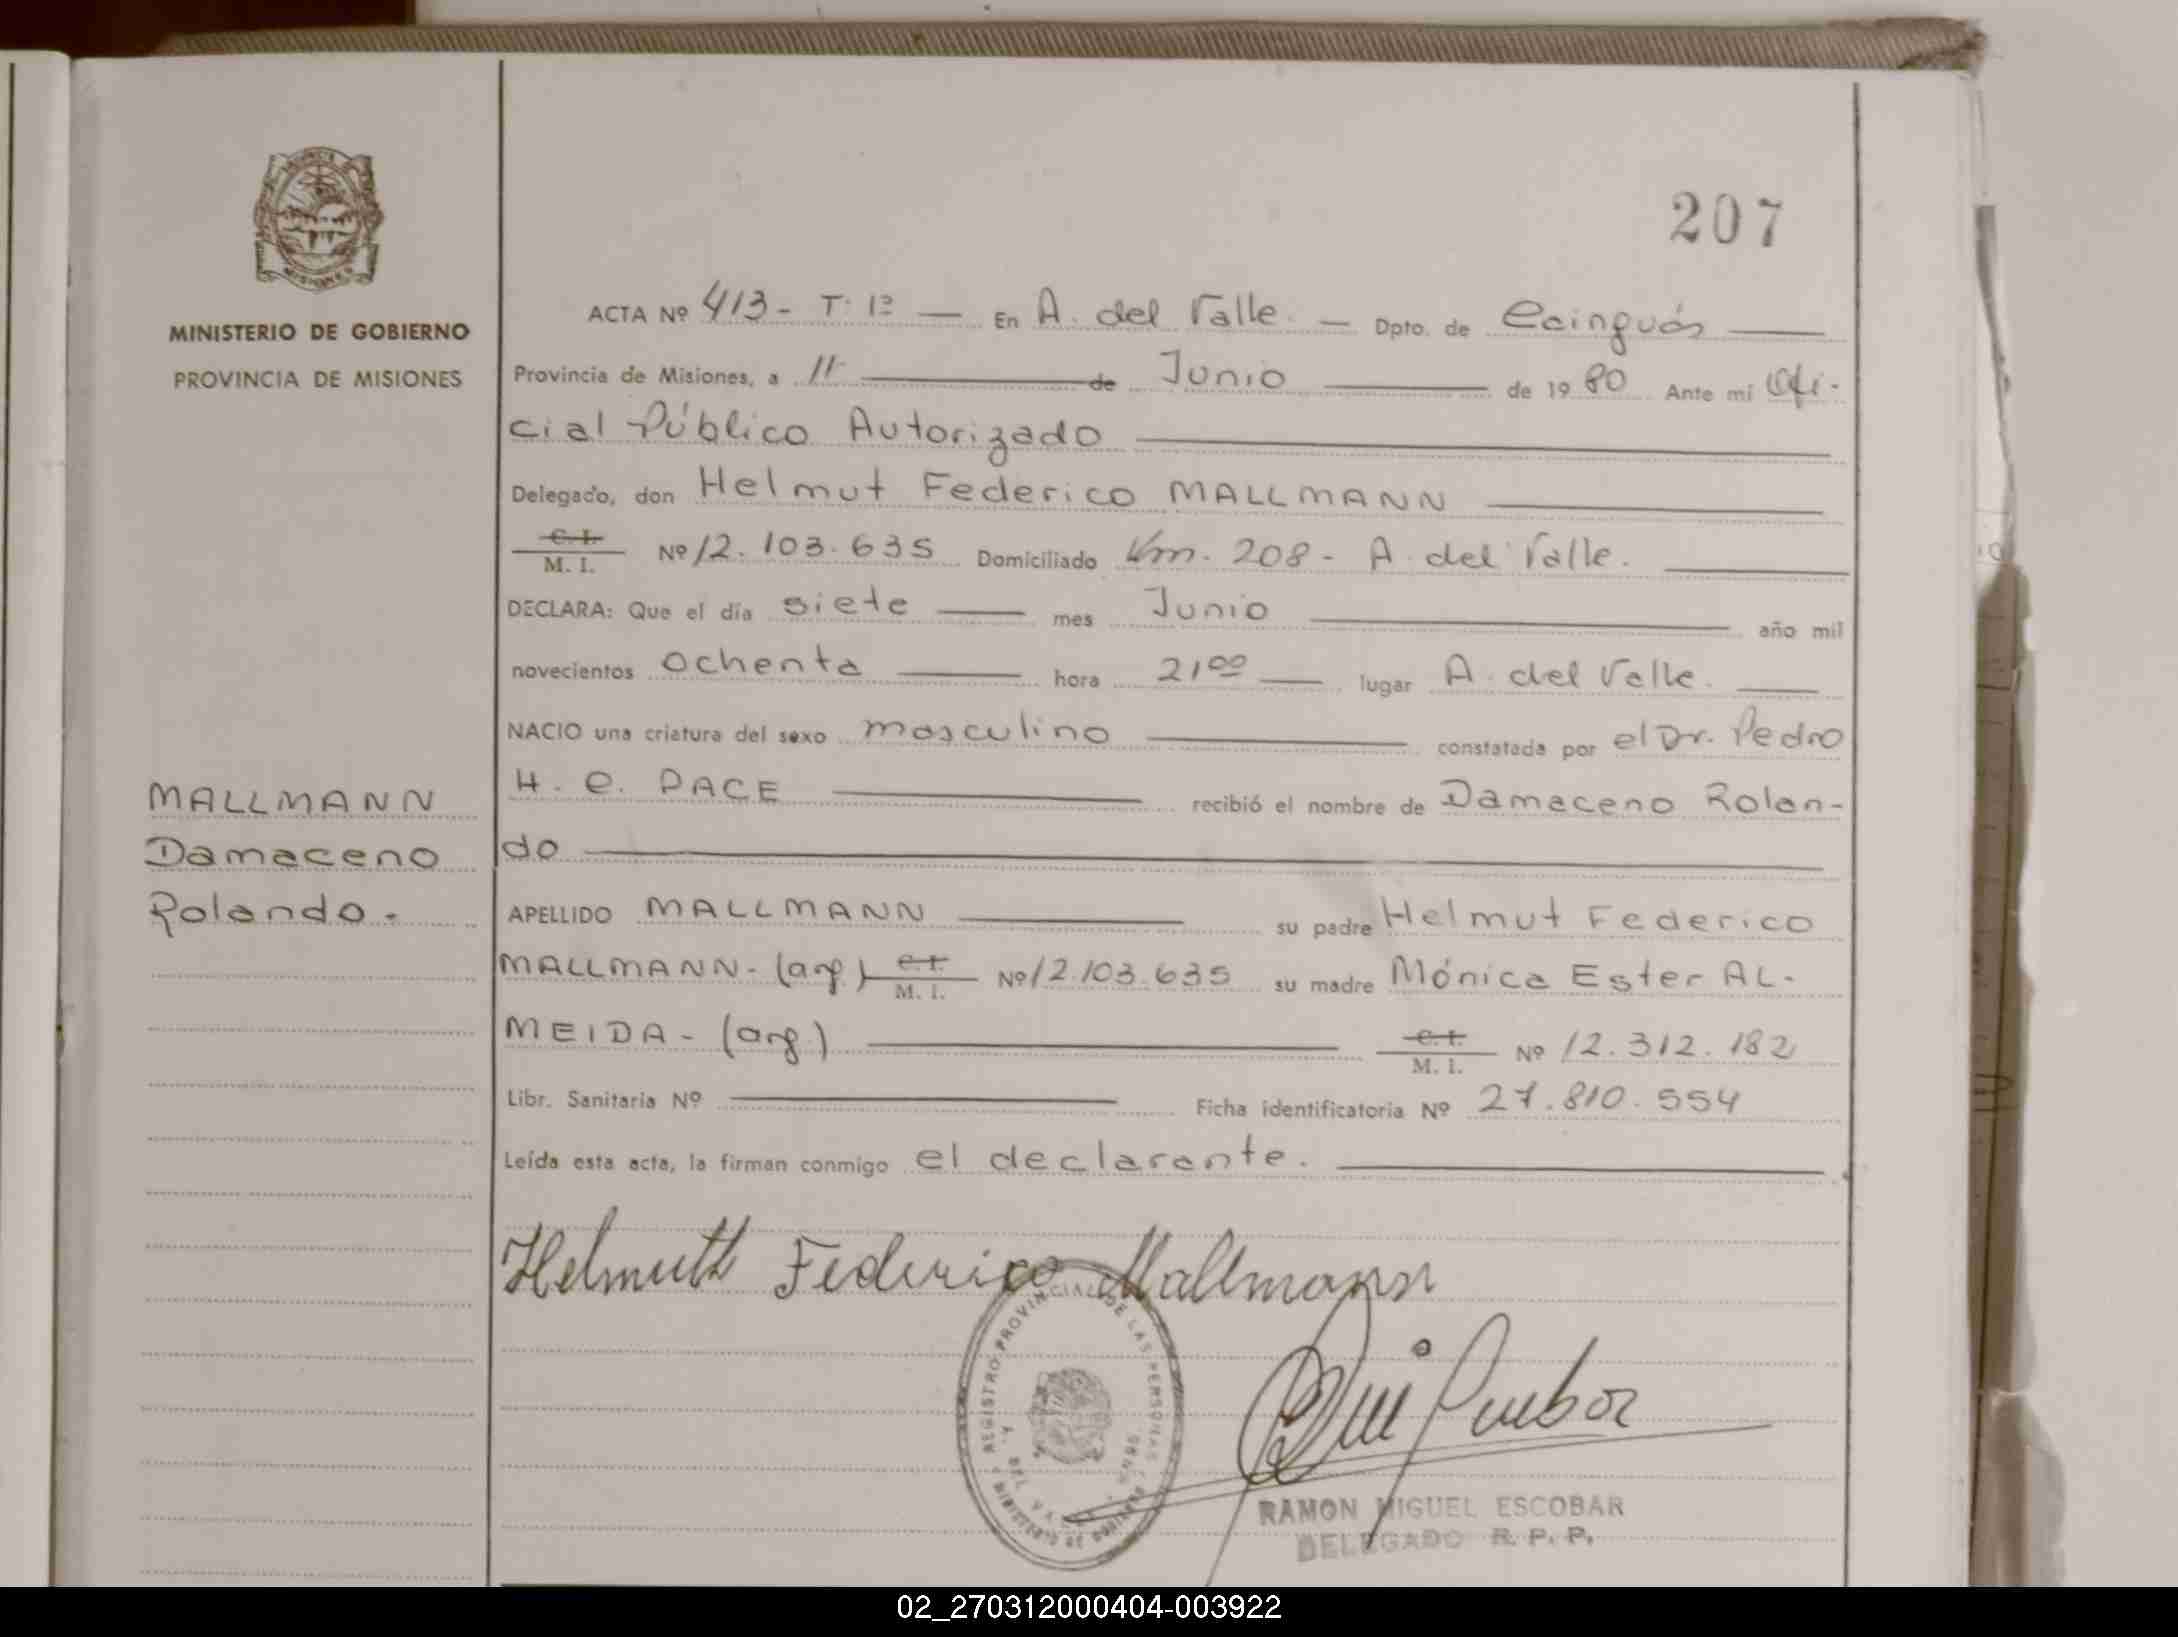 207
MINISTERIO DE GOBIERNO
PROVINCIA DE MISIONES
ACTA Nº 413 - T. 1º — En A. del Valle. — Dpto. de Cainguás
Provincia de Misiones, a 11 de Junio de 1980 Ante mí Ofi-
cial Público Autorizado
Delegado, don Helmut Federico MALLMANN
C. I.
M. I. Nº 12.103.635 Domiciliado Km. 208 - A. del Valle.
DECLARA: Que el día siete mes Junio año mil
novecientos ochenta hora 21⁰⁰ lugar A. del Valle.
NACIO una criatura del sexo masculino constatada por el Dr. Pedro
H. C. PACE recibió el nombre de Damaceno Rolan-
do
MALLMANN
Damaceno
Rolando.-
APELLIDO MALLMANN su padre Helmut Federico
MALLMANN - (arg.) C. I.
M. I. Nº 12.103.635 su madre Mónica Ester AL-
MEIDA - (arg.) C. I.
M. I. Nº 12.312.182
Libr. Sanitaria Nº Ficha identificatoria Nº 27.810.554
Leída esta acta, la firman conmigo el declarante.
Helmuth Federico Mallmann
REGISTRO PROVINCIAL DE LAS PERSONAS
A. DEL VALLE
MINISTERIO DE GOBIERNO
RAMON MIGUEL ESCOBAR
DELEGADO R. P. P.
02_270312000404-003922